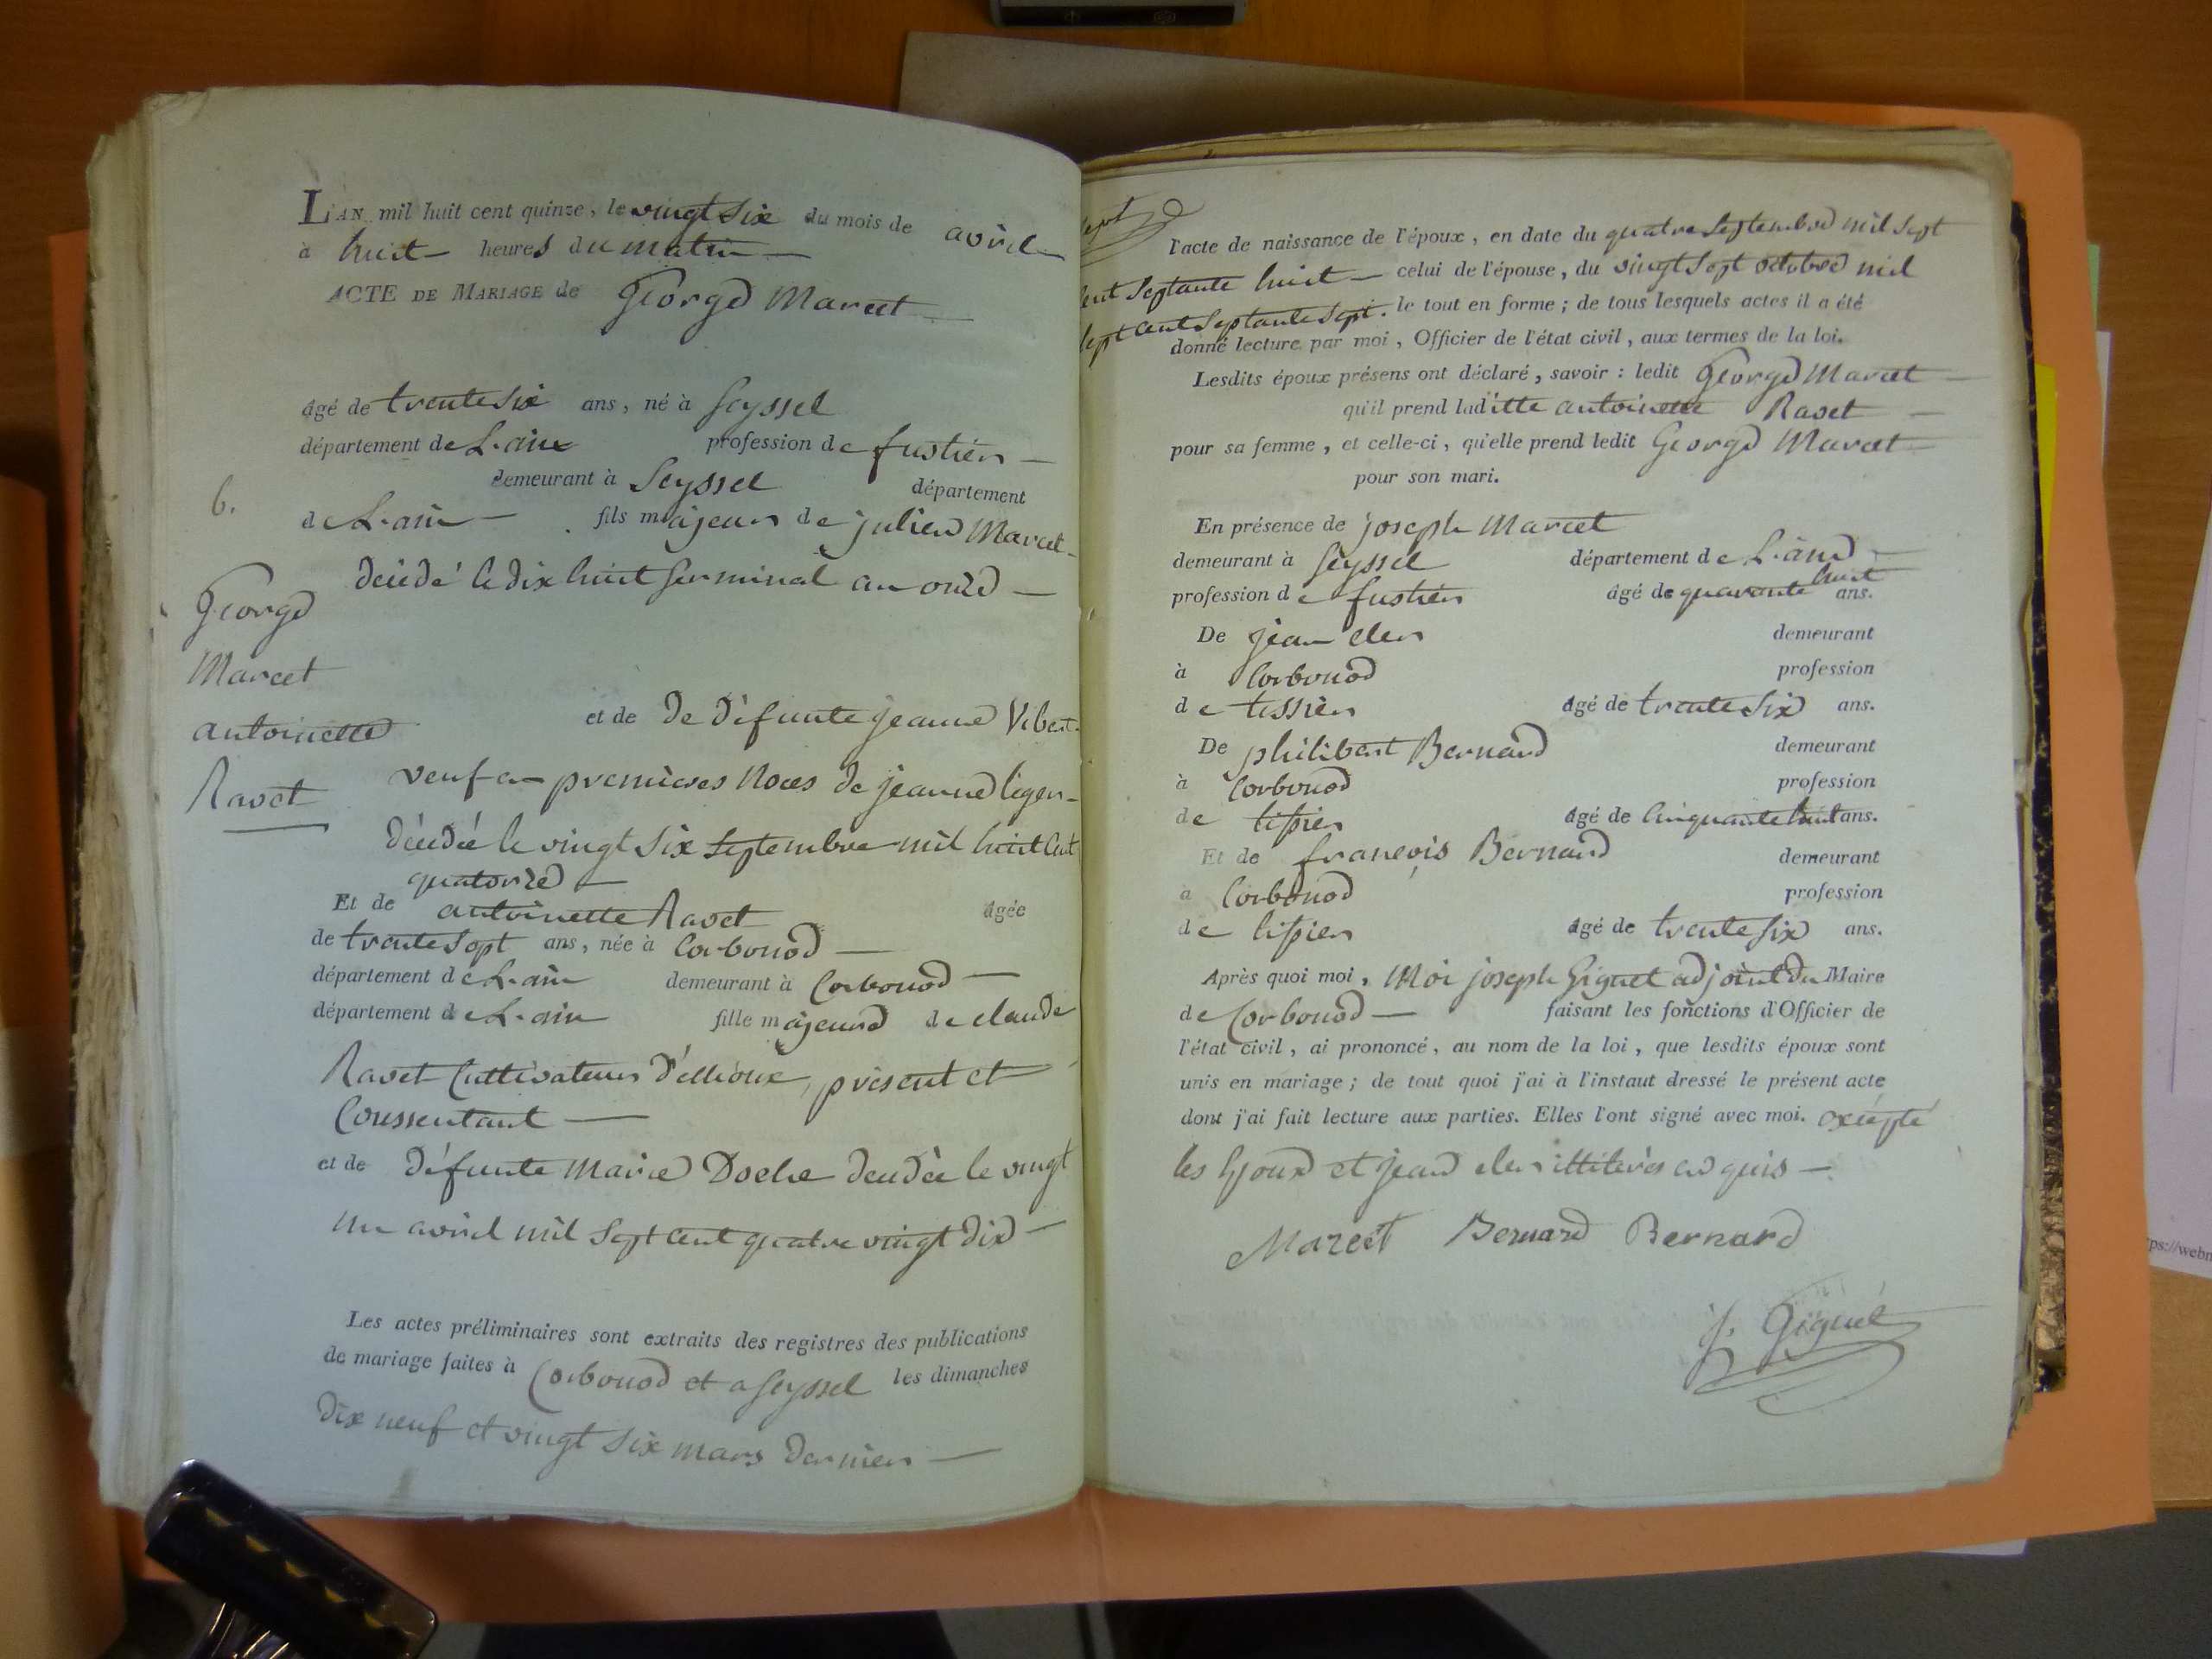 L'AN mil huit cent quinze, le vingt six du mois de avril
à huit heures du matin
ACTE DE MARIAGE de George Marcet
âgé de trente six ans, né à Seyssel
département de L'ain profession de fustier
demeurant à Seyssel département
6.
de L'ain fils majeur de julien Marcet
décédé le dix huit germinal an onze
George
Marcet
antoinette
Ravet
et de de défunte jeanne Vibert
veuf en premières Noces de jeanne liger
décédée le vingt six septembre mil huit Cent
quatorze
Et de antoinette Ravet âgée
de trente sept ans, née à Corbonod
département de L'ain demeurant à Corbonod
département de L'ain fille majeure de claude
Ravet Cultivateur d'Ellioux, présent et
Conssentant
et de défunte Marie Doche décédée le vingt
un avril mil sept cent quatre vingt dix
Les actes préliminaires sont extraits des registres des publications
de mariage faites à Corbonod et a Seyssel les dimanches
dix neuf et vingt six mars dernier
l'acte de naissance de l'époux, en date du quatre septembre mil sept
cent septante huit celui de l'épouse, du vingt sept octobre mil
sept cent septante sept. le tout en forme ; de tous lesquels actes il a été
donné lecture par moi, Officier de l'état civil, aux termes de la loi.
Lesdits époux présens ont déclaré, savoir : ledit George Marcet
qu'il prend laditte antoinette Ravet
pour sa femme, et celle-ci, qu'elle prend ledit George Marcet
pour son mari.
En présence de joseph Marcet
demeurant à Seyssel département de L'ain
profession de fustier âgé de quarante huit ans.
De jean cler demeurant
à Corbonod profession
de tissier âgé de trente six ans.
De philibert Bernard demeurant
à Corbonod profession
de tissier âgé de Cinquante huit ans.
Et de françois Bernard demeurant
à Corbonod profession
de tissier âgé de trente six ans.
Après quoi moi, Moi joseph Giguet adjoint du Maire
de Corbonod faisant les fonctions d'Officier de
l'état civil, ai prononcé, au nom de la loi, que lesdits époux sont
unis en mariage ; de tout quoi j'ai à l'instaut dressé le présent acte
dont j'ai fait lecture aux parties. Elles l'ont signé avec moi. excepté
les Epoux et jean cler illiterés enquis
Marcet Bernard Bernard
J. Giguet